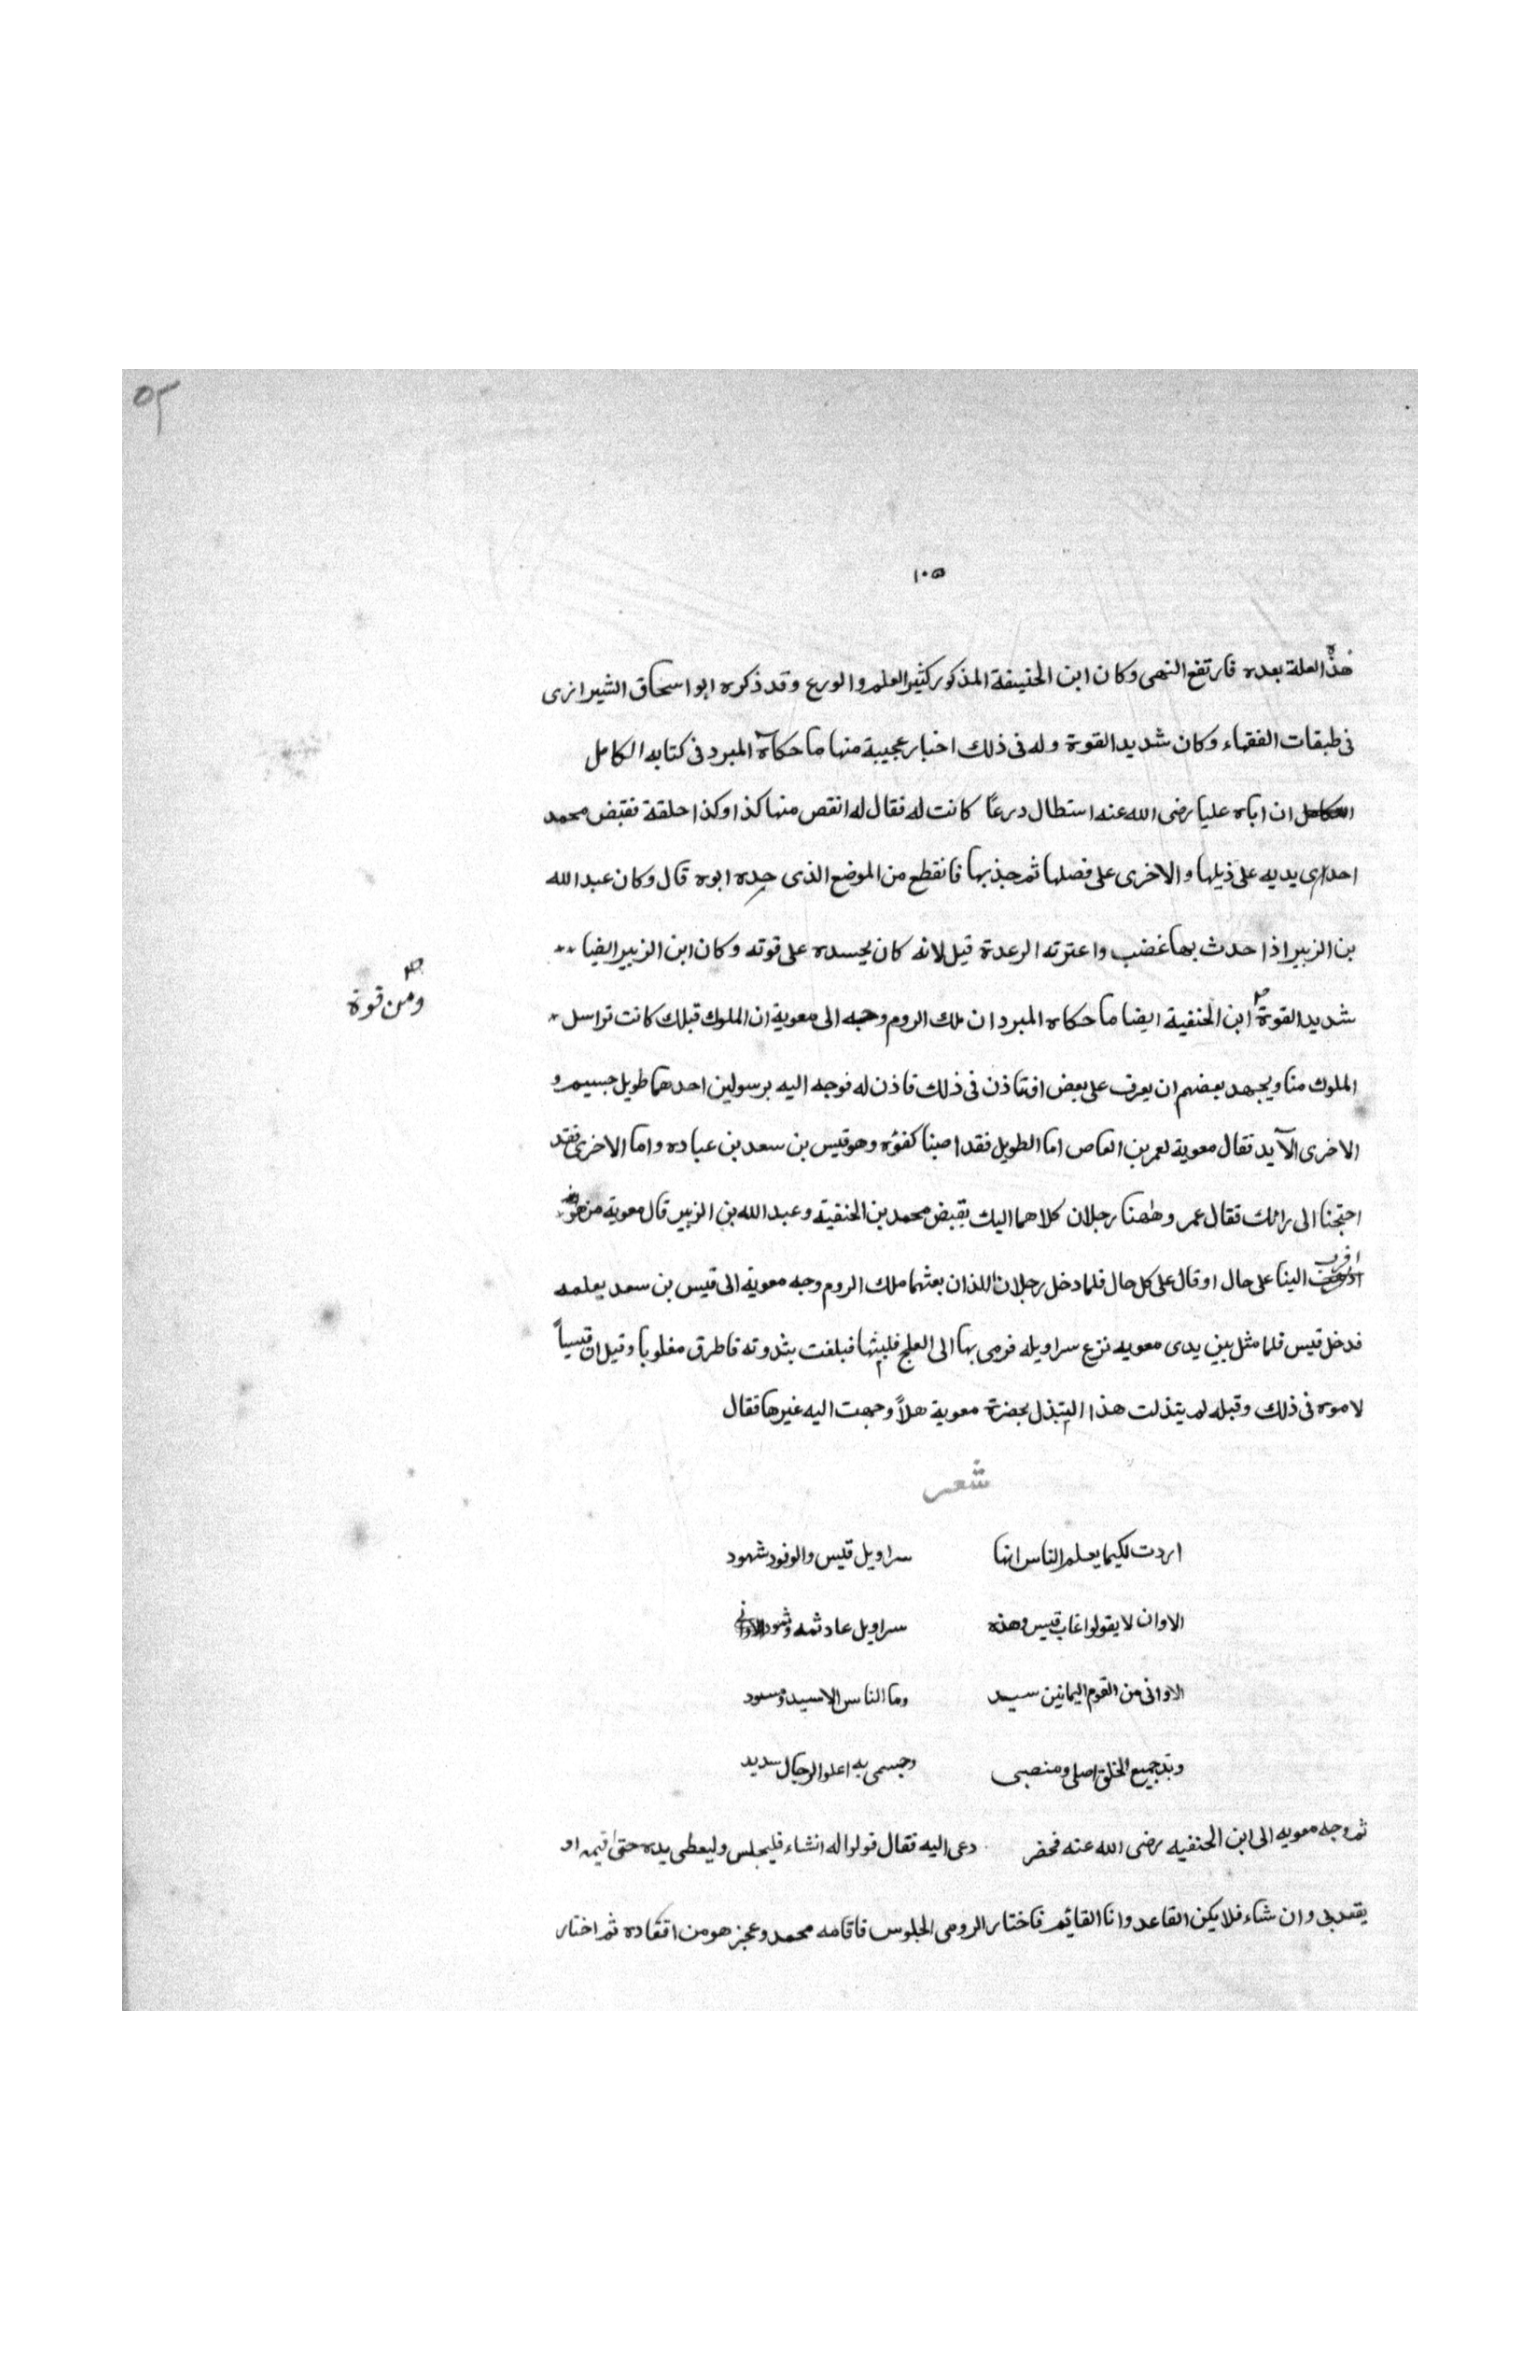 ٥٣
١٠٥
هذه العلة بعده فارتفع النهى وكان ابن الحنيفة المذكور كثير العلم والورع وقد ذكره ابو اسحاق الشيرازى
فى طبقات الفقهاء وكان شديد القوة وله فى ذلك اخبار عجيبة منها ما حكاه المبرد فى كتابه الكامل
ان اباه عليا رضى الله عنه استطال درعًا كانت له فقال له انقص منها كذا وكذا حلقة فقبض محمد
احدى يديه على ذيلها والاخرى على فصلها ثم جذبها فانقطع من الموضع الذى حده ابوه قال وكان عبد الله
بن الزبير اذا حدث بها غضب واعترته الرعدة قيل لانه كان يحسده على قوته وكان ابن الزبير ايضا
شديد القوة ابن الحنفية ايضا ما حكاه المبرد ان ملك الروم وجه الى معوية ان الملوك قبلك كانت تراسل
ومن قوة
الملوك منا ويجهد بعضهم ان يعرف على بعض افتاذن فى ذلك فاذن له فوجه اليه برسولين احدهما طويل جسيم و
الاخرى الآيد فقال معوية لعمر بن العاص اما الطويل فقد اصبنا كفؤه وهو قيس بن سعد بن عباده واما الاخرى فقد
احتجنا الى رائك فقال عمر وههنا رجلان كلاهما اليك بقبض محمد بن الحنفية وعبد الله بن الزبير قال معوية من هو
اقرب الينا على حال او قال على كل حال فلما دخل رجلان اللذان بعثهما ملك الروم وجه معوية الى قيس بن سعد يعلمه
فدخل قيس فلما مثل بين يدى معويه نزع سراويله فرمى بها الى العلج فلبثها فبلغت بثدوته فاطرق مغلوبا وقيل ان قيسًا
لاموه فى ذلك وقبله لم يتذلت هذا التبذل بحضرة معوية هلاً وجهت اليه غيرها فقال
شعر
اردت لكيما يعلم الناس انها سراويل قيس والوفود شهود
الاوان لا يقولوا غاب قيس وهذه سراويل عاد ثمه وثمود
الاوانى من القوم اليمانين سيد وما الناس الا سيد ومسود
وبذ جميع الخلق اصلى ومنصبى وجسمى به اعلو الرجال سديد
ثم وجه معويه الى ابن الحنفيه رضى الله عنه فحضر دعى اليه فقال قولوا له انشاء فليجلس وليعطى يده حتى اقيمه او
يقعد بى وان شاء فلا يكن القاعد وانا القائم فاختار الرومى الجلوس فاقامه محمد وعجز هو من اقعاده ثم اختار